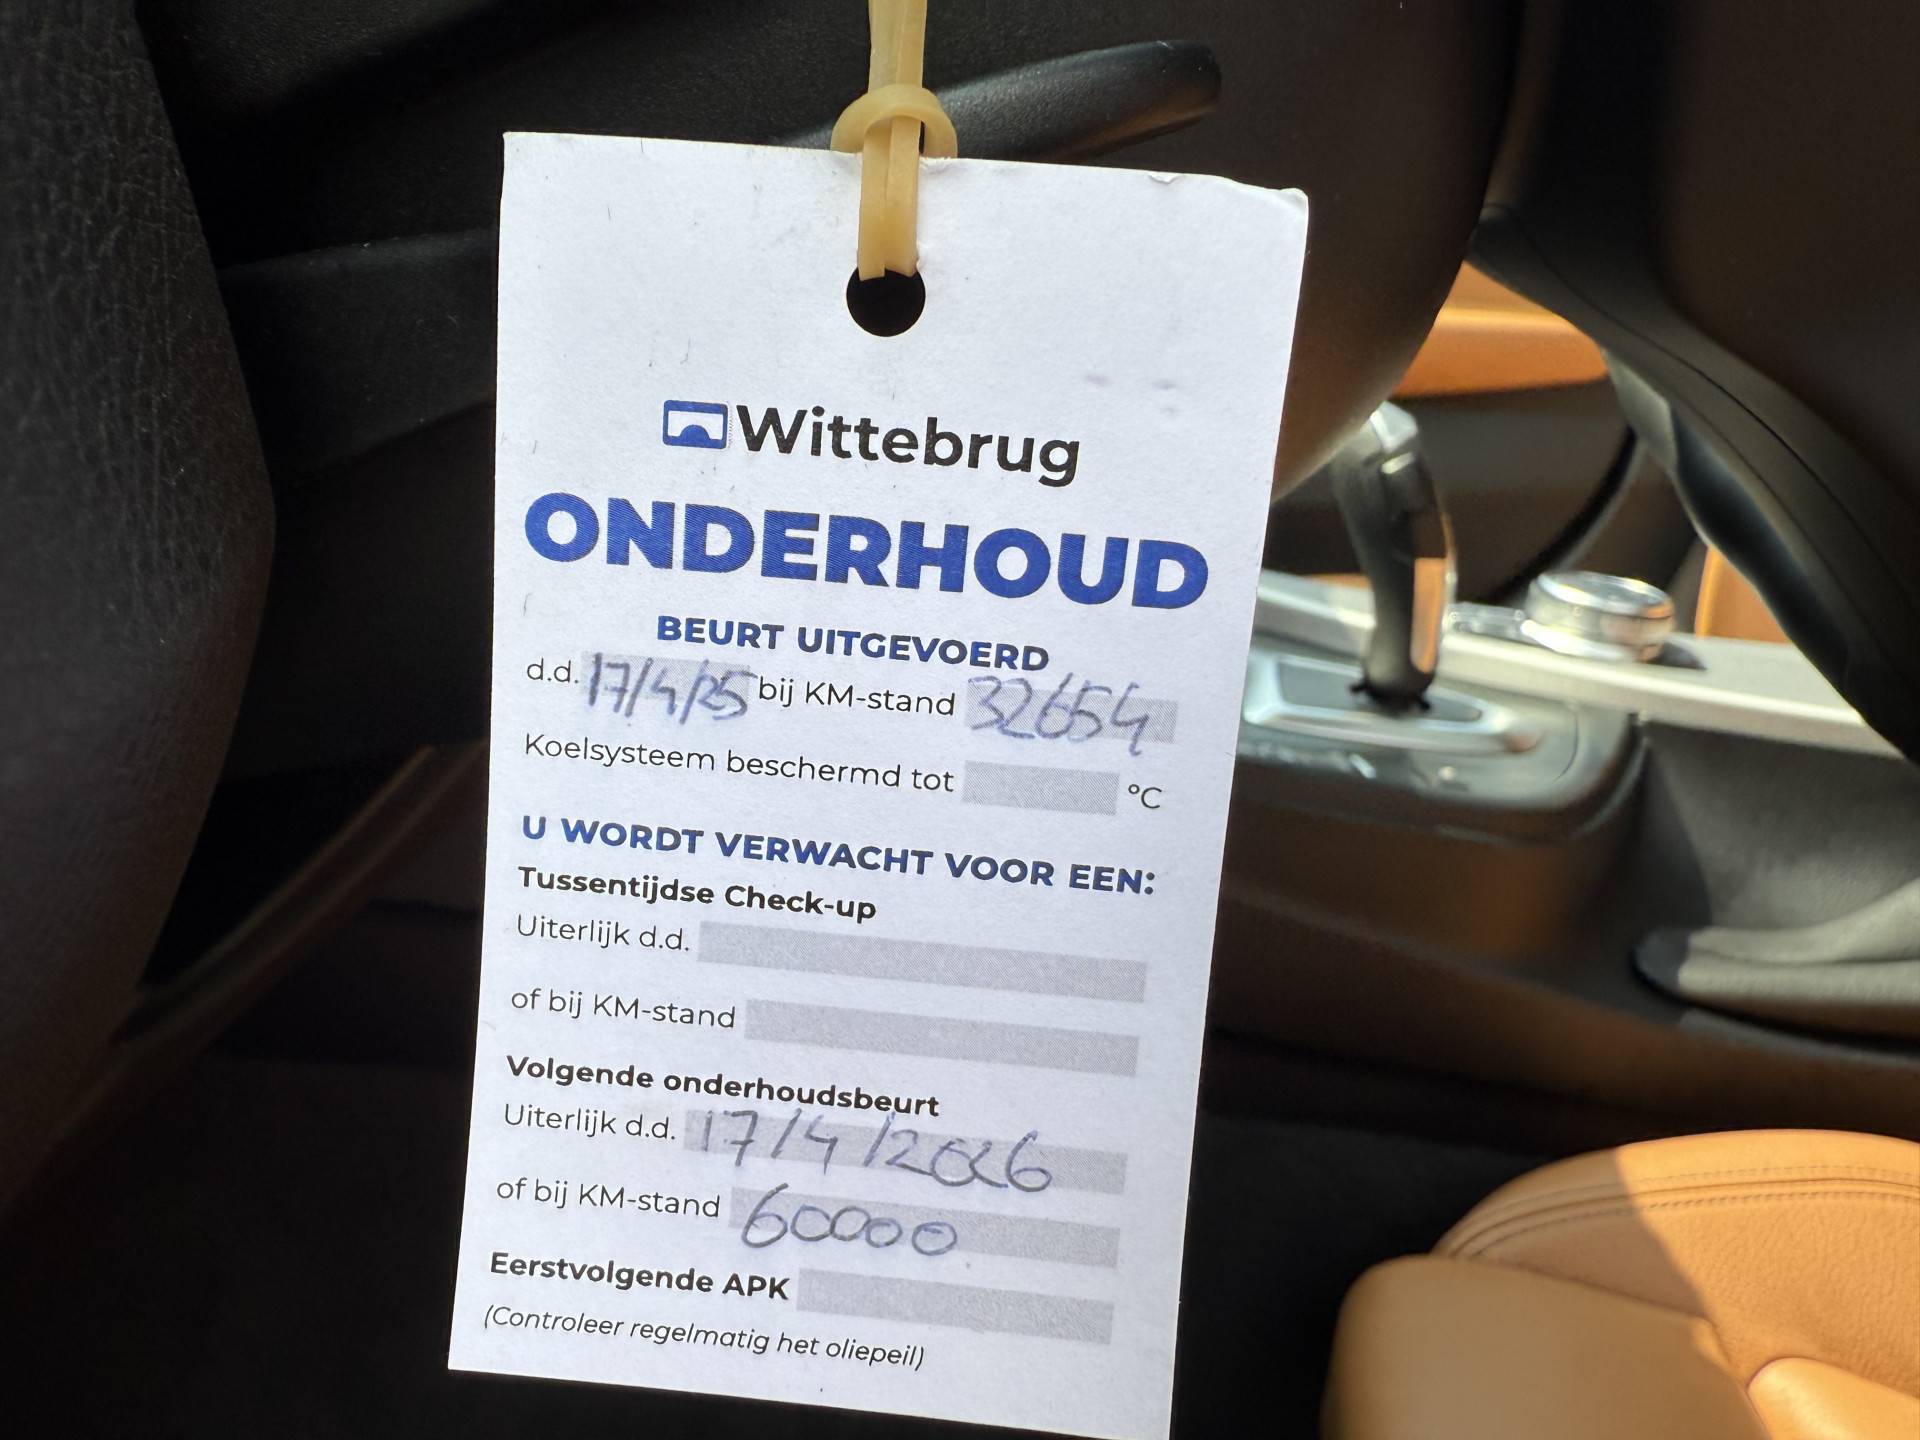 Wittebrug
ONDERHOUD
BEURT UITGEVOERD
d.d. 17/4/25 bij KM-stand 32654
Koelsysteem beschermd tot °C
U WORDT VERWACHT VOOR EEN:
Tussentijdse Check-up
Uiterlijk d.d.
of bij KM-stand
Volgende onderhoudsbeurt
Uiterlijk d.d. 17/4/2026
of bij KM-stand 60000
Eerstvolgende APK
(Controleer regelmatig het oliepeil)